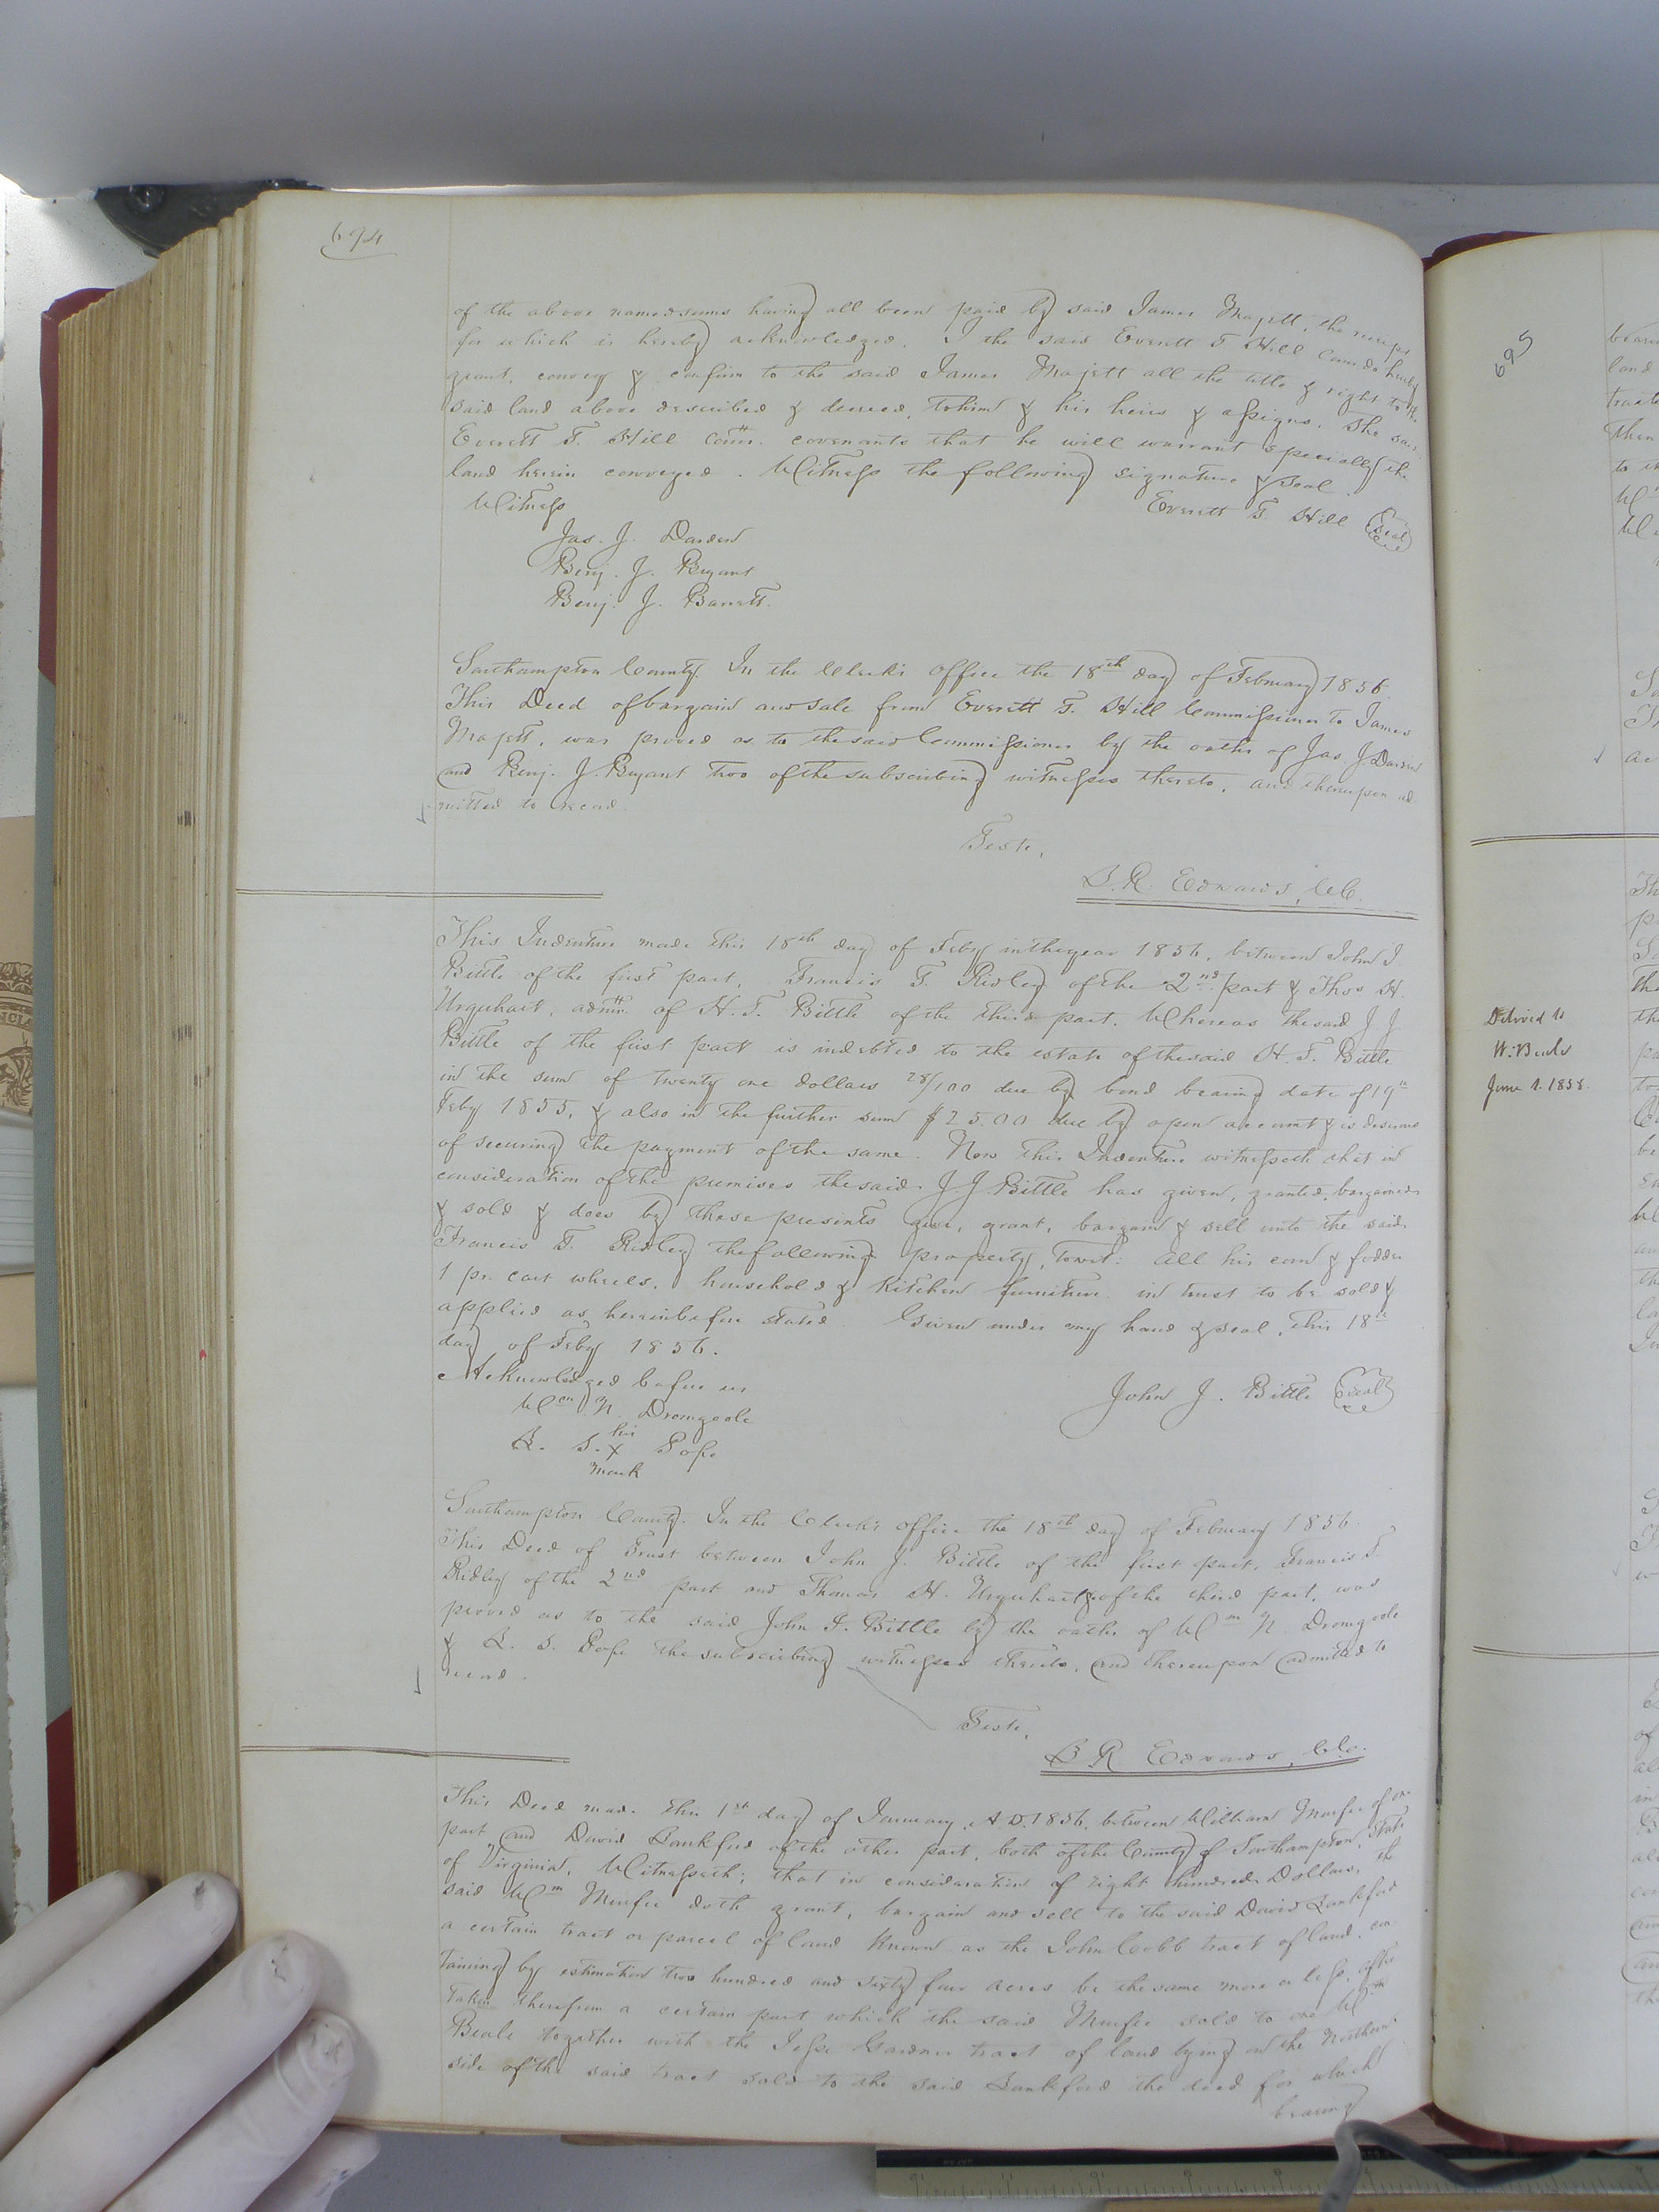 694
of the above named sums having all been paid by said James Majett, the receipt
for which is hereby acknowledged. I the said Everett T. Hill Com. do hereby
grant, convey & confirm to the said James Majett all the title & right to the
said land above described & decreed, to him & his heirs & assigns. The said
Everett T. Hill Comr. covenants that he will warrant specially the
land herein conveyed. Witness the following signature & seal.
Witness
Everett T. Hill (Seal)
Jas. J. Darden
Benj. J. Bryant
Benj. J. Barrett.
Southampton County. In the Clerk's Office the 18th day of February 1856.
This Deed of bargain and sale from Everett T. Hill Commissioner to James
Majett, was proved as to the said Commissioner by the oaths of Jas. J. Darden
and Benj. J. Bryant two of the subscribing witnesses thereto, and thereupon ad
mitted to record.
Teste,
L. R. Edwards, Clk.
This Indenture made this 18th day of Feby in the year 1856, between John J.
Bittle of the first part, Francis T. Ridley of the 2nd. part & Thos H.
Urquhart, admr. of H. T. Bittle of the third part. Whereas the said J. J.
Bittle of the first part is indebted to the estate of the said H. T. Bittle
in the sum of twenty one dollars 28/100 due by bond bearing date of 19th
Feby 1855, & also in the further sum $25.00 due by open account & is desirous
of securing the payment of the same. Now this Indenture witnesseth that in
consideration of the premises the said J. J. Bittle has given, granted, bargained
& sold & does by these presents give, grant, bargain & sell unto the said
Francis T. Ridley the following property, towit: all his corn & fodder
1 pr. cart wheels, household & kitchen furniture in trust to be sold &
applied as hereinbefore stated. Given under my hand & seal, this 18th
day of Feby 1856.
Acknowledged before us
John J. Bittle (Seal)
Wm N. Dromgoole
his
S. x Pope
mark
Southampton County. In the Clerk's office the 18th day of February 1856.
This Deed of Trust between John J. Bittle of the first part, Francis T.
Ridley of the 2nd part and Thomas H. Urquhart of the third part, was
proved as to the said John J. Bittle by the oaths of Wm N. Dromgoole
& S. Pope the subscribing witnesses thereto, and thereupon admitted to
record.
Teste,
L. R. Edwards, Clk.
This Deed made the 1st day of January A.D. 1856, between William Murfee of one
part and David Lankford of the other part, both of the County of Southampton, State
of Virginia, Witnesseth; that in consideration of Eight hundred Dollars, the
said Wm Murfee doth grant, bargain and sell to the said David Lankford
a certain tract or parcel of land known as the John Cobb tract of land. con
taining by estimation two hundred and sixty four acres be the same more or less, after
taken therefrom a certain part which the said Murfee sold to one Wm
Beale together with the Jesse Gardner tract of land lying on the Northern
side of the said tract sold to the said Lankford the deed for which
bearing
695
Delived to
W. Beale
June 1. 1858.